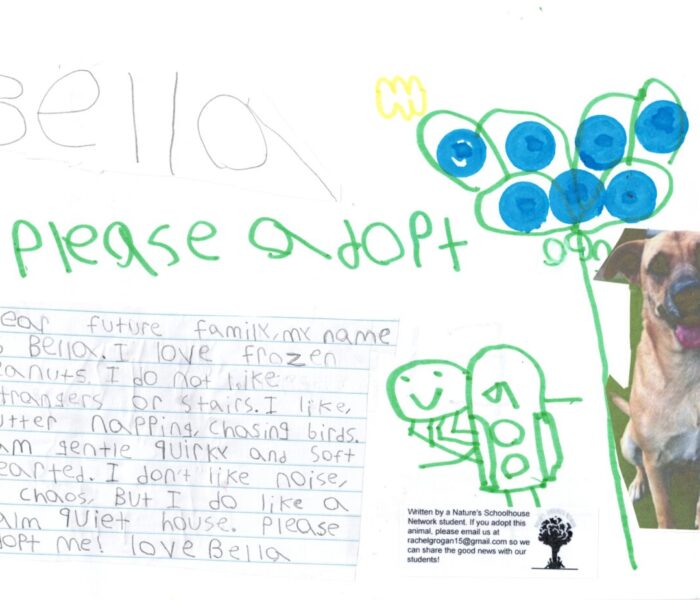 Bella
please adopt
ear future family, my name
s Bella. I love frozen
eanuts. I do not like
trangers or stairs. I like,
utter napping, chasing birds.
am gentle quirky and soft
earted. I don't like noise,
chaos, But I do like a
alm quiet house. please
dopt me! love Bella
Written by a Nature's Schoolhouse
Network student. If you adopt this
animal, please email us at
rachelgrogan15@gmail.com so we
can share the good news with our
students!